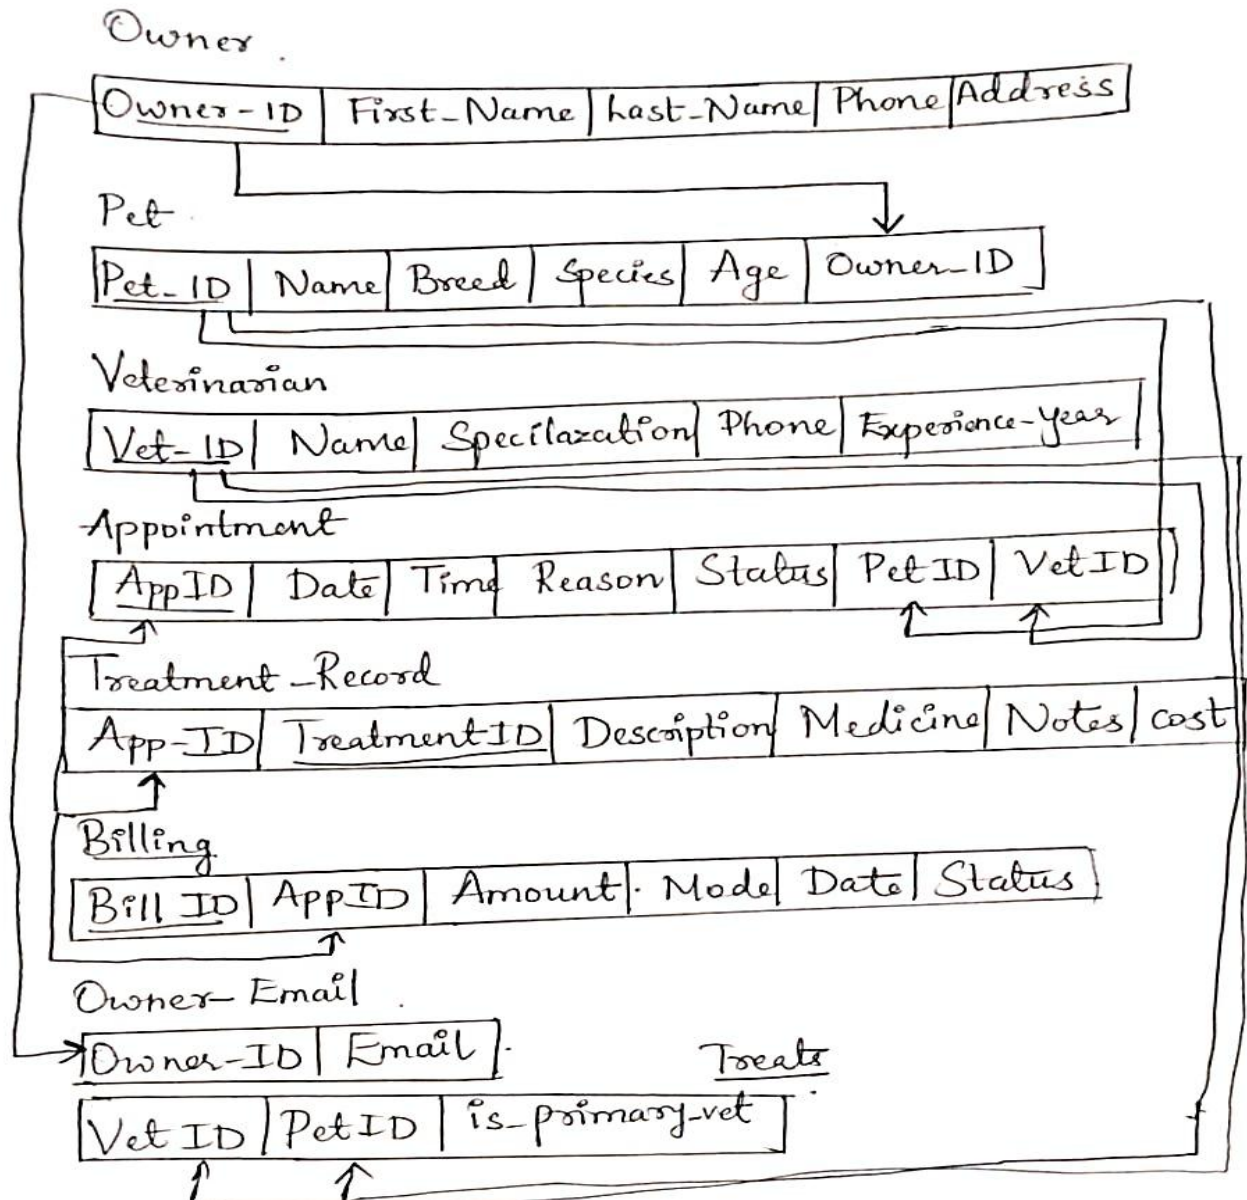 Owner
Owner-ID First_Name Last_Name Phone Address
Pet
Pet_ID Name Breed Species Age Owner_ID
Veterinarian
Vet-ID Name Specilazation Phone Experience-year
Appointment
AppID Date Time Reason Status PetID VetID
Treatment_Record
App-ID TreatmentID Description Medicine Notes cost
Billing
Bill ID AppID Amount. Mode Date Status
Owner-Email
Owner-ID Email
Treats
VetID PetID is_primary_vet